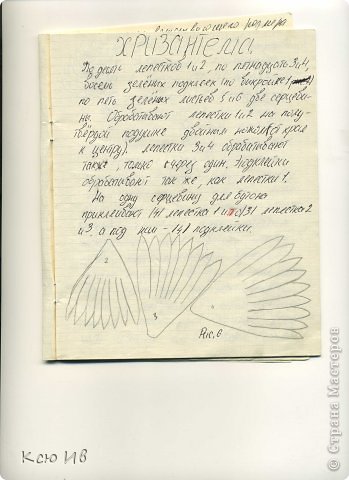 размера
хризантема
По десять лепестков 1 и 2, по пятнадцать 3 и 4,
восемь зелёных подклеек (по выкройке
по пять зелёных листьев 5 и 6 две сердцеви-
ны. Обрабатывают лепестки 1 и 2 на полу-
твёрдой подушке двойным ножом (с края
к центру), лепестки 3 и 4 обрабатывают
также, только через один. Подклейки
обрабатывают так же, как лепестки 1.
На одну сердцевину для бутона
приклеивают (4) лепестка 1 и по (3) лепестка 2
и 3, а под них - (4) подклейки.
2
3
Рис. 6
Ксю ИВ
© Страна Мастеров